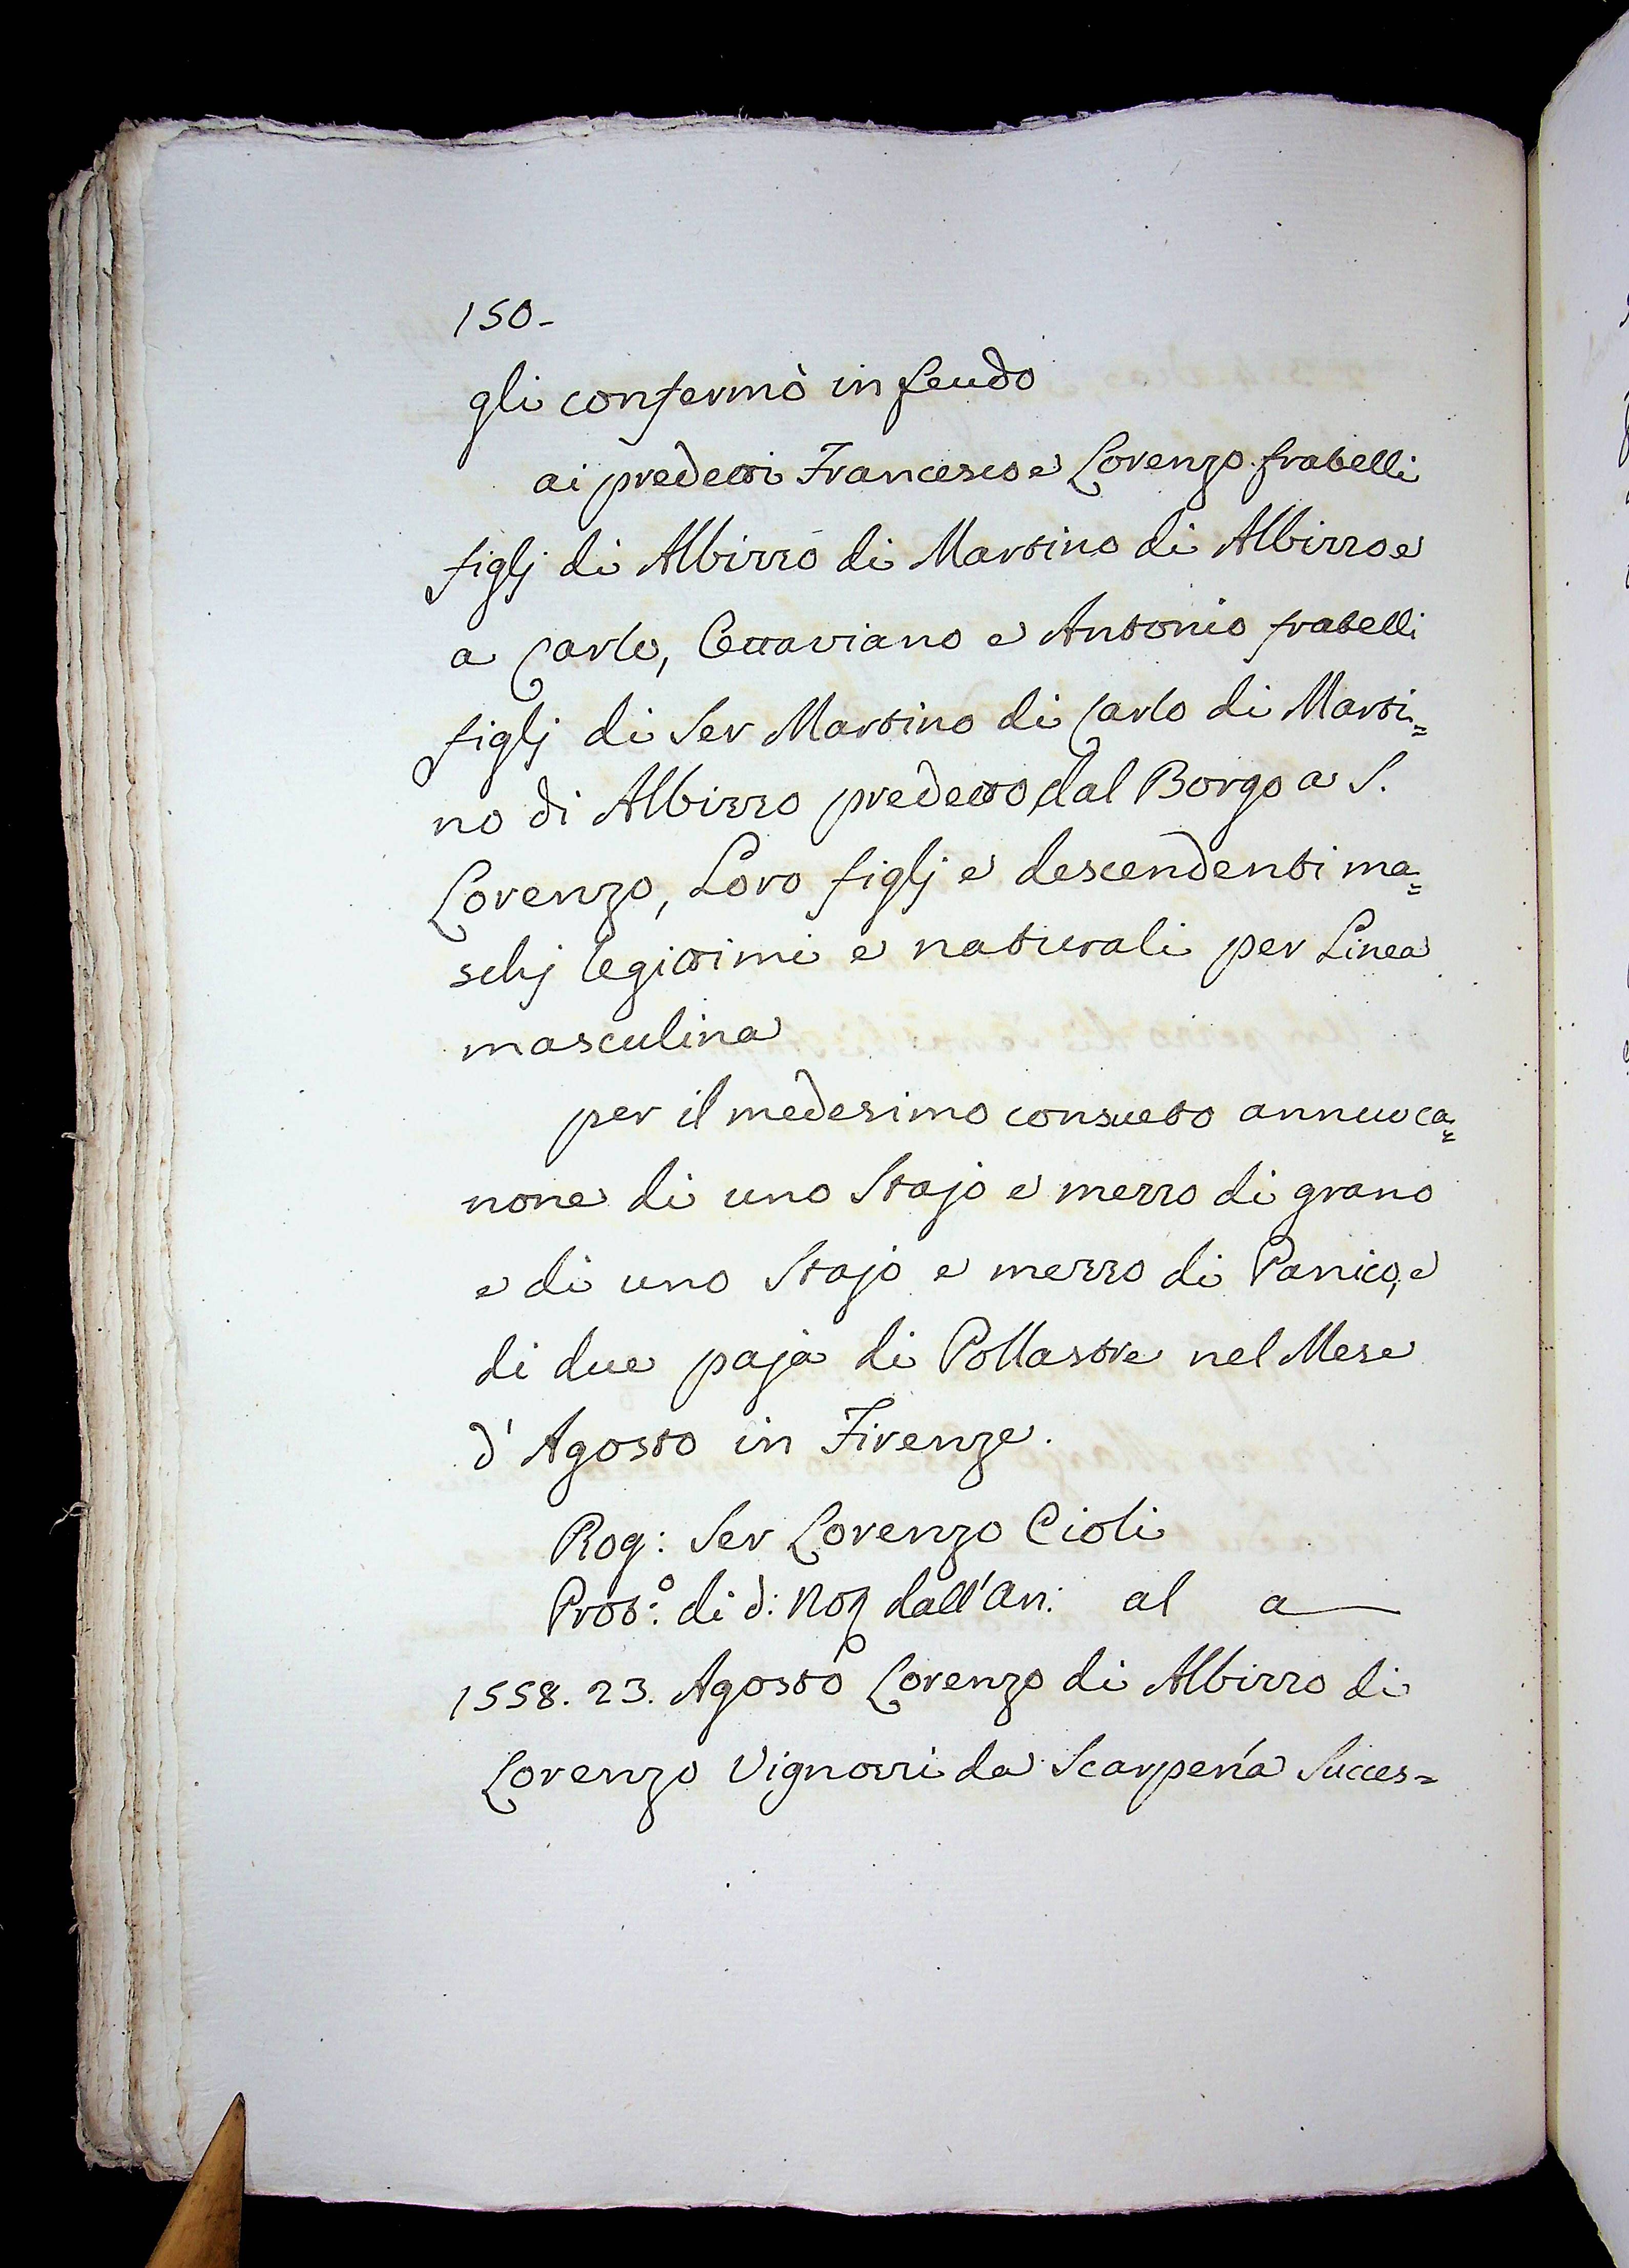 150-
gli confermò in feudo
ai predetti Francesco e Lorenzo fratelli
figlj di Albizzo di Martino di Albizzo e
a Carlo, Ottaviano e Antonio fratelli
figlj di Ser Martino di Carlo di Marti=
no di Albizzo predetto dal Borgo a S.
Lorenzo, Loro figlj e descendenti ma=
schj legittimi e naturali per Linea
masculina
per il medesimo consueto annuo ca=
none di uno Stajo e mezzo di grano
e di uno Stajo e mezzo di Panico, e
di due paja di Pollastre nel Mese
d'Agosto in Firenze.
Rog: Ser Lorenzo Cioli
Prot:º di d: Noꝶ dall'an: al a
1558. 23. Agosto Lorenzo di Albizzo di
Lorenzo Vignozzi da Scarperia Succes=